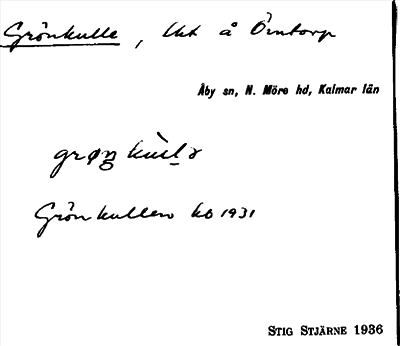 Grönkulle, lht å Örntorp
Åby sn, N. Möre hd, Kalmar län
Grönkullen kb 1931
STIG STJÄRNE 1936